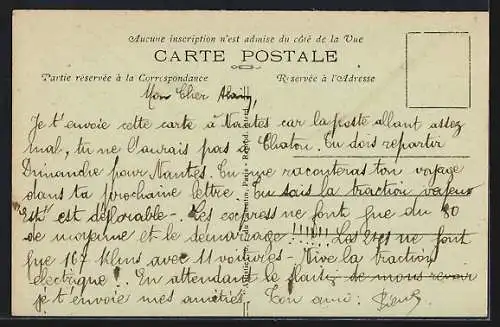 Aucune inscription n'est admise du côté de la Vue
CARTE POSTALE
Partie réservée à la Correspondance
Réservée à l'Adresse
Mon Cher
Je t'envoie cette carte à Nantes car la poste allant assez
mal, tu ne l'aurais pas à Chatou. Tu dois repartir
Dimanche pour Nantes. Tu me raconteras ton voyage
dans ta prochaine lettre. Tu sais la traction vapeur
Etat est déplorable -. Les express ne font que du 80
de moyenne et le démarrage !!!!!! Les ne font
que 107 klms avec 11 voitures - Vive la traction
électrique! En attendant le plaisir de nous revoir
je t'envoie mes amitiés. Ton ami: